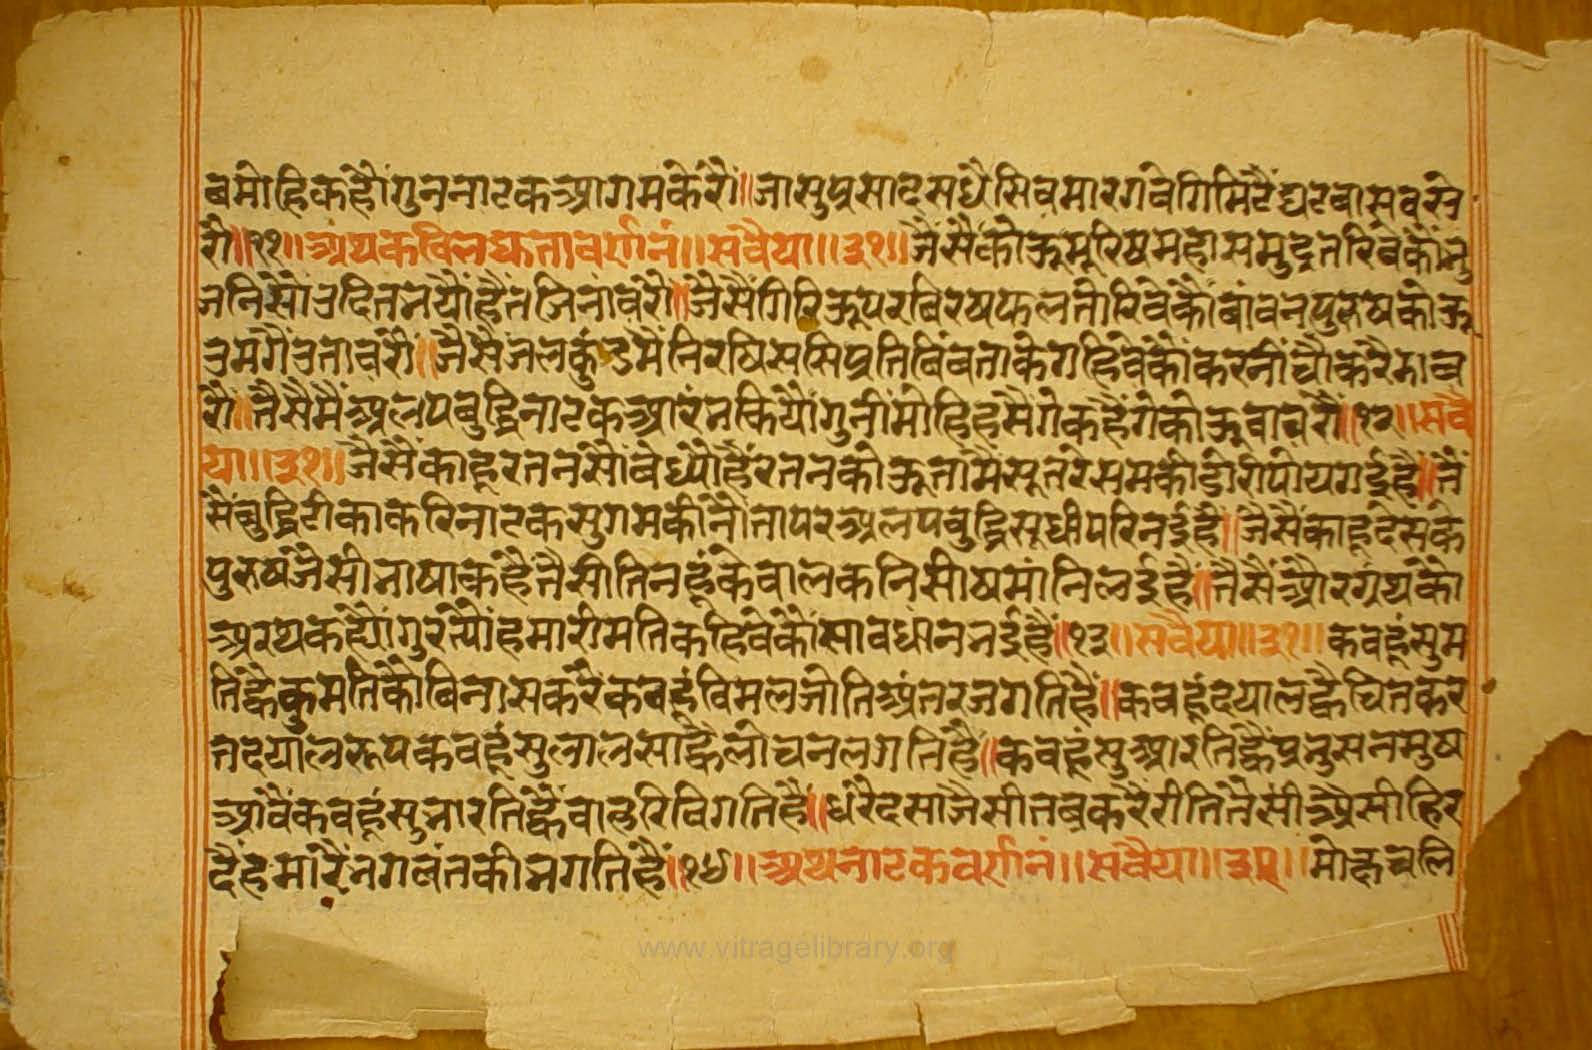 बमोहिकहौंगुननाटकआगमकेरौ॥जासुप्रसादसधैसिवमारगवेगिमिटैघटवासवसे
रौ॥११॥अथकविलघुतावर्णनं॥सवैया॥३१॥जैसैकोऊमूरिषमहासमुद्रतरिवेकौंभु
जनिसोंउदितभयौहैतजिनावरौ॥जैसैंगिरिऊपरबिरषफलतोरिवेकौंबांवनपुरुषकोऊ
उमगैउतावरौ॥जैसैजलकुंडमैंनिरषिससिप्रतिबिंबताकेगहिवेकौंकरनीचौकरैडाब
रौ॥तैसैमैंअलपबुद्धिनाटकआरंभकियौगुनीमोहिहसैंगेकहैंगेकोऊबावरौ॥१२॥सवै
या॥३१॥जैसैंकाहूरतनसौंवेध्योहैरतनकोऊतामैंसूतरेसमकीडोरीपोयगईहै॥तै
सैंबुद्धिटीकाकरिनाटकसुगमकीनौतापरअलपबुद्धिसूधीपरिनईहै॥जैसैंकाहूदेसके
पुरुषजैसीभाषाकहैतैसीतिनहूंकेबालकनिसीषमांनिलईहै॥तैसैंज्यौरग्रंथकौ
अरथकह्यौगुरत्यौंहमारीमतिकहिवेकौंसावधानभईहै॥१३॥सवैया॥३१॥कबहूंसुम
तिह्वैकुमतिकौबिनासकरैकबहूंविमलजोतिअंतरजगतिहै॥कबहूंदयालह्वैचितकर
तदयालरूपकबहूंसुलालसाह्वैलोचनलगतिहै॥कबहूंसुआरतिह्वैप्रभुसनमुष
आवैकबहूंसुभारतिह्वैबाहरिविगतिहै॥धरैदसाजैसीतबकरैरीतितैसीऐसीहिर
दैहमारैंभगवंतकीभगतिहै॥१४॥अथनाटकवर्णनं॥सवैया॥३१॥मोहचलि
www.vitragelibrary.org